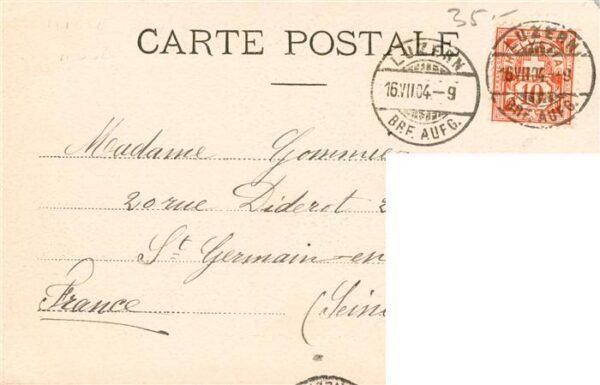 35.-
CARTE POSTALE
LUZERN
16.VII.04.-9
BRF. AUFG.
LUZERN
16.VII.04.-9
BRF. AUFG.
10
Madame
20 rue Diderot
St Germain-en
France (Seine